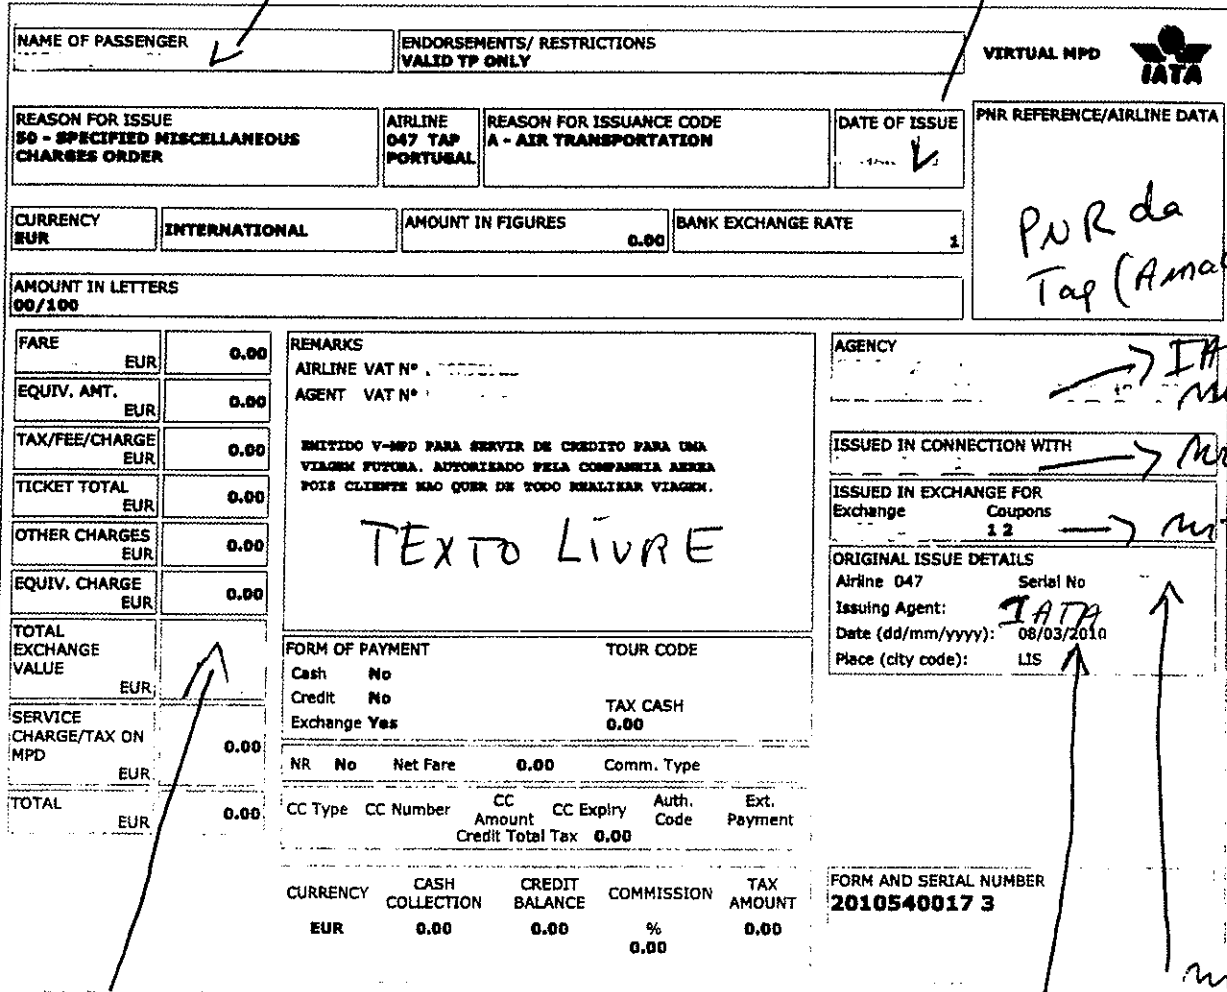 NAME OF PASSENGER
ENDORSEMENTS/ RESTRICTIONS
VALID TP ONLY
VIRTUAL MPD
IATA
REASON FOR ISSUE
50 - SPECIFIED MISCELLANEOUS
CHARGES ORDER
AIRLINE
047 TAP
PORTUGAL
REASON FOR ISSUANCE CODE
A - AIR TRANSPORTATION
DATE OF ISSUE
PNR REFERENCE/AIRLINE DATA
PNR da
Tap (Ama
CURRENCY
EUR
INTERNATIONAL
AMOUNT IN FIGURES
0.00
BANK EXCHANGE RATE
1
AMOUNT IN LETTERS
00/100
FARE
EUR 0.00
EQUIV. AMT.
EUR 0.00
TAX/FEE/CHARGE
EUR 0.00
TICKET TOTAL
EUR 0.00
OTHER CHARGES
EUR 0.00
EQUIV. CHARGE
EUR 0.00
TOTAL
EXCHANGE
VALUE
EUR
SERVICE
CHARGE/TAX ON
MPD
EUR 0.00
TOTAL
EUR 0.00
REMARKS
AIRLINE VAT Nº
AGENT VAT Nº
EMITIDO V-MPD PARA SERVIR DE CREDITO PARA UMA
VIAGEM FUTURA. AUTORIZADO PELA COMPANHIA AEREA
POIS CLIENTE NAO QUER DE TODO REALIZAR VIAGEM.
TEXTO LIVRE
FORM OF PAYMENT
TOUR CODE
Cash No
Credit No
TAX CASH
Exchange Yes 0.00
NR No Net Fare 0.00 Comm. Type
CC Type CC Number CC Amount CC Expiry Auth. Code Ext. Payment
Credit Total Tax 0.00
CURRENCY CASH COLLECTION CREDIT BALANCE COMMISSION TAX AMOUNT
EUR 0.00 0.00 % 0.00
0.00
AGENCY
IA
ISSUED IN CONNECTION WITH
ISSUED IN EXCHANGE FOR
Exchange Coupons
1 2
ORIGINAL ISSUE DETAILS
Airline 047 Serial No
Issuing Agent: IATA
Date (dd/mm/yyyy): 08/03/2010
Place (city code): LIS
FORM AND SERIAL NUMBER
2010540017 3